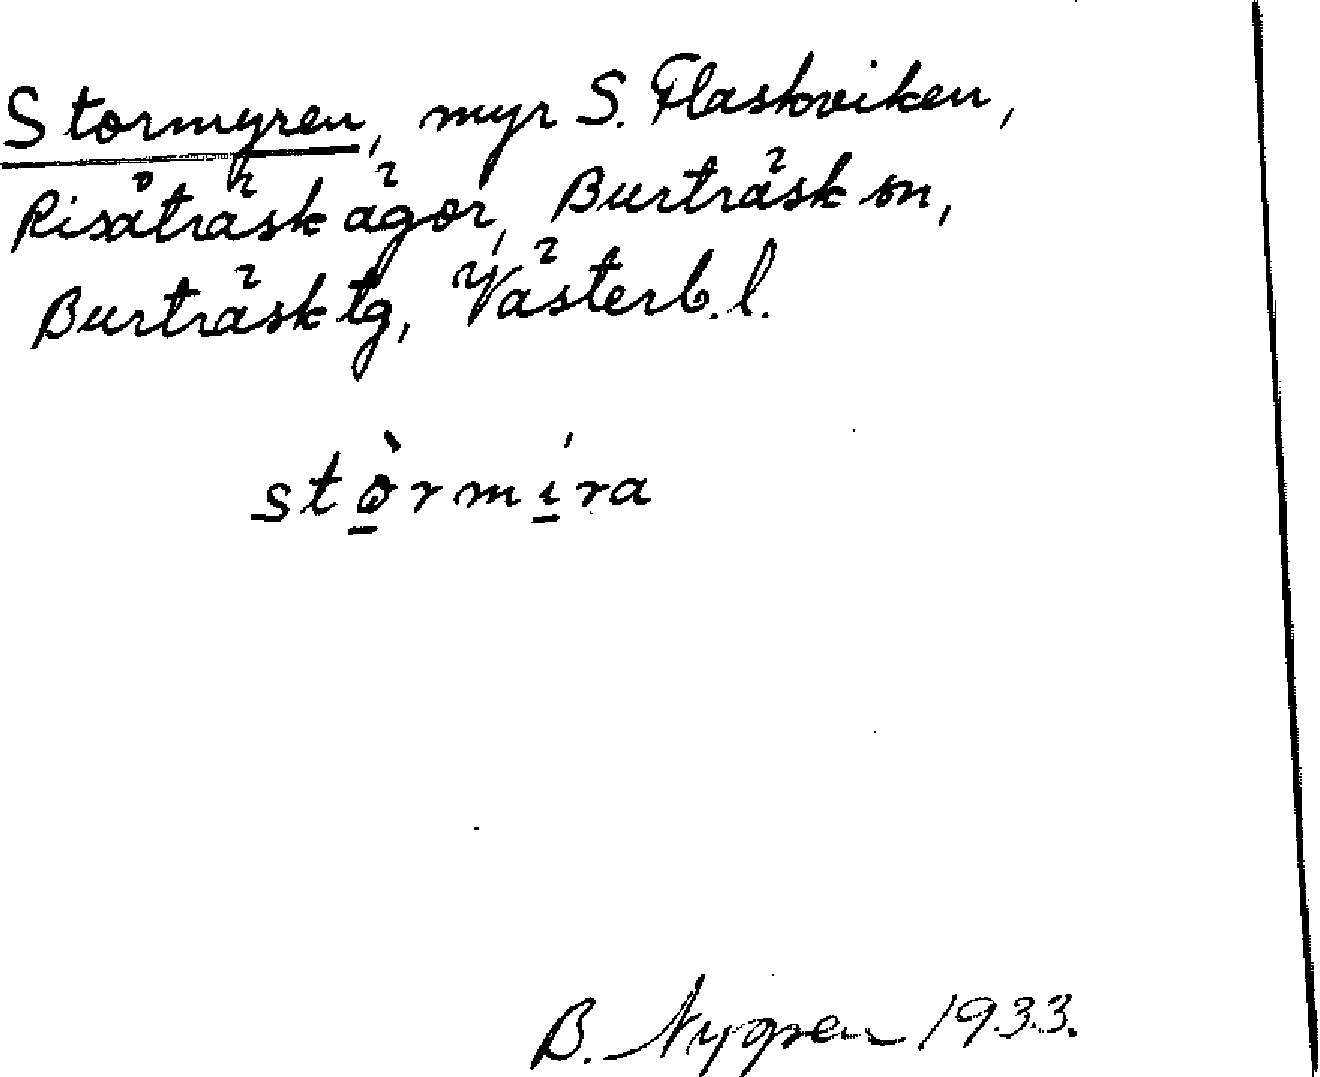 Stormyren, myr S. Flaskviken,
Risåträsk ägor, Burträsk sn,
Burträsk tg, Västerb. l.
stòrmíra
B. Nygren 1933.